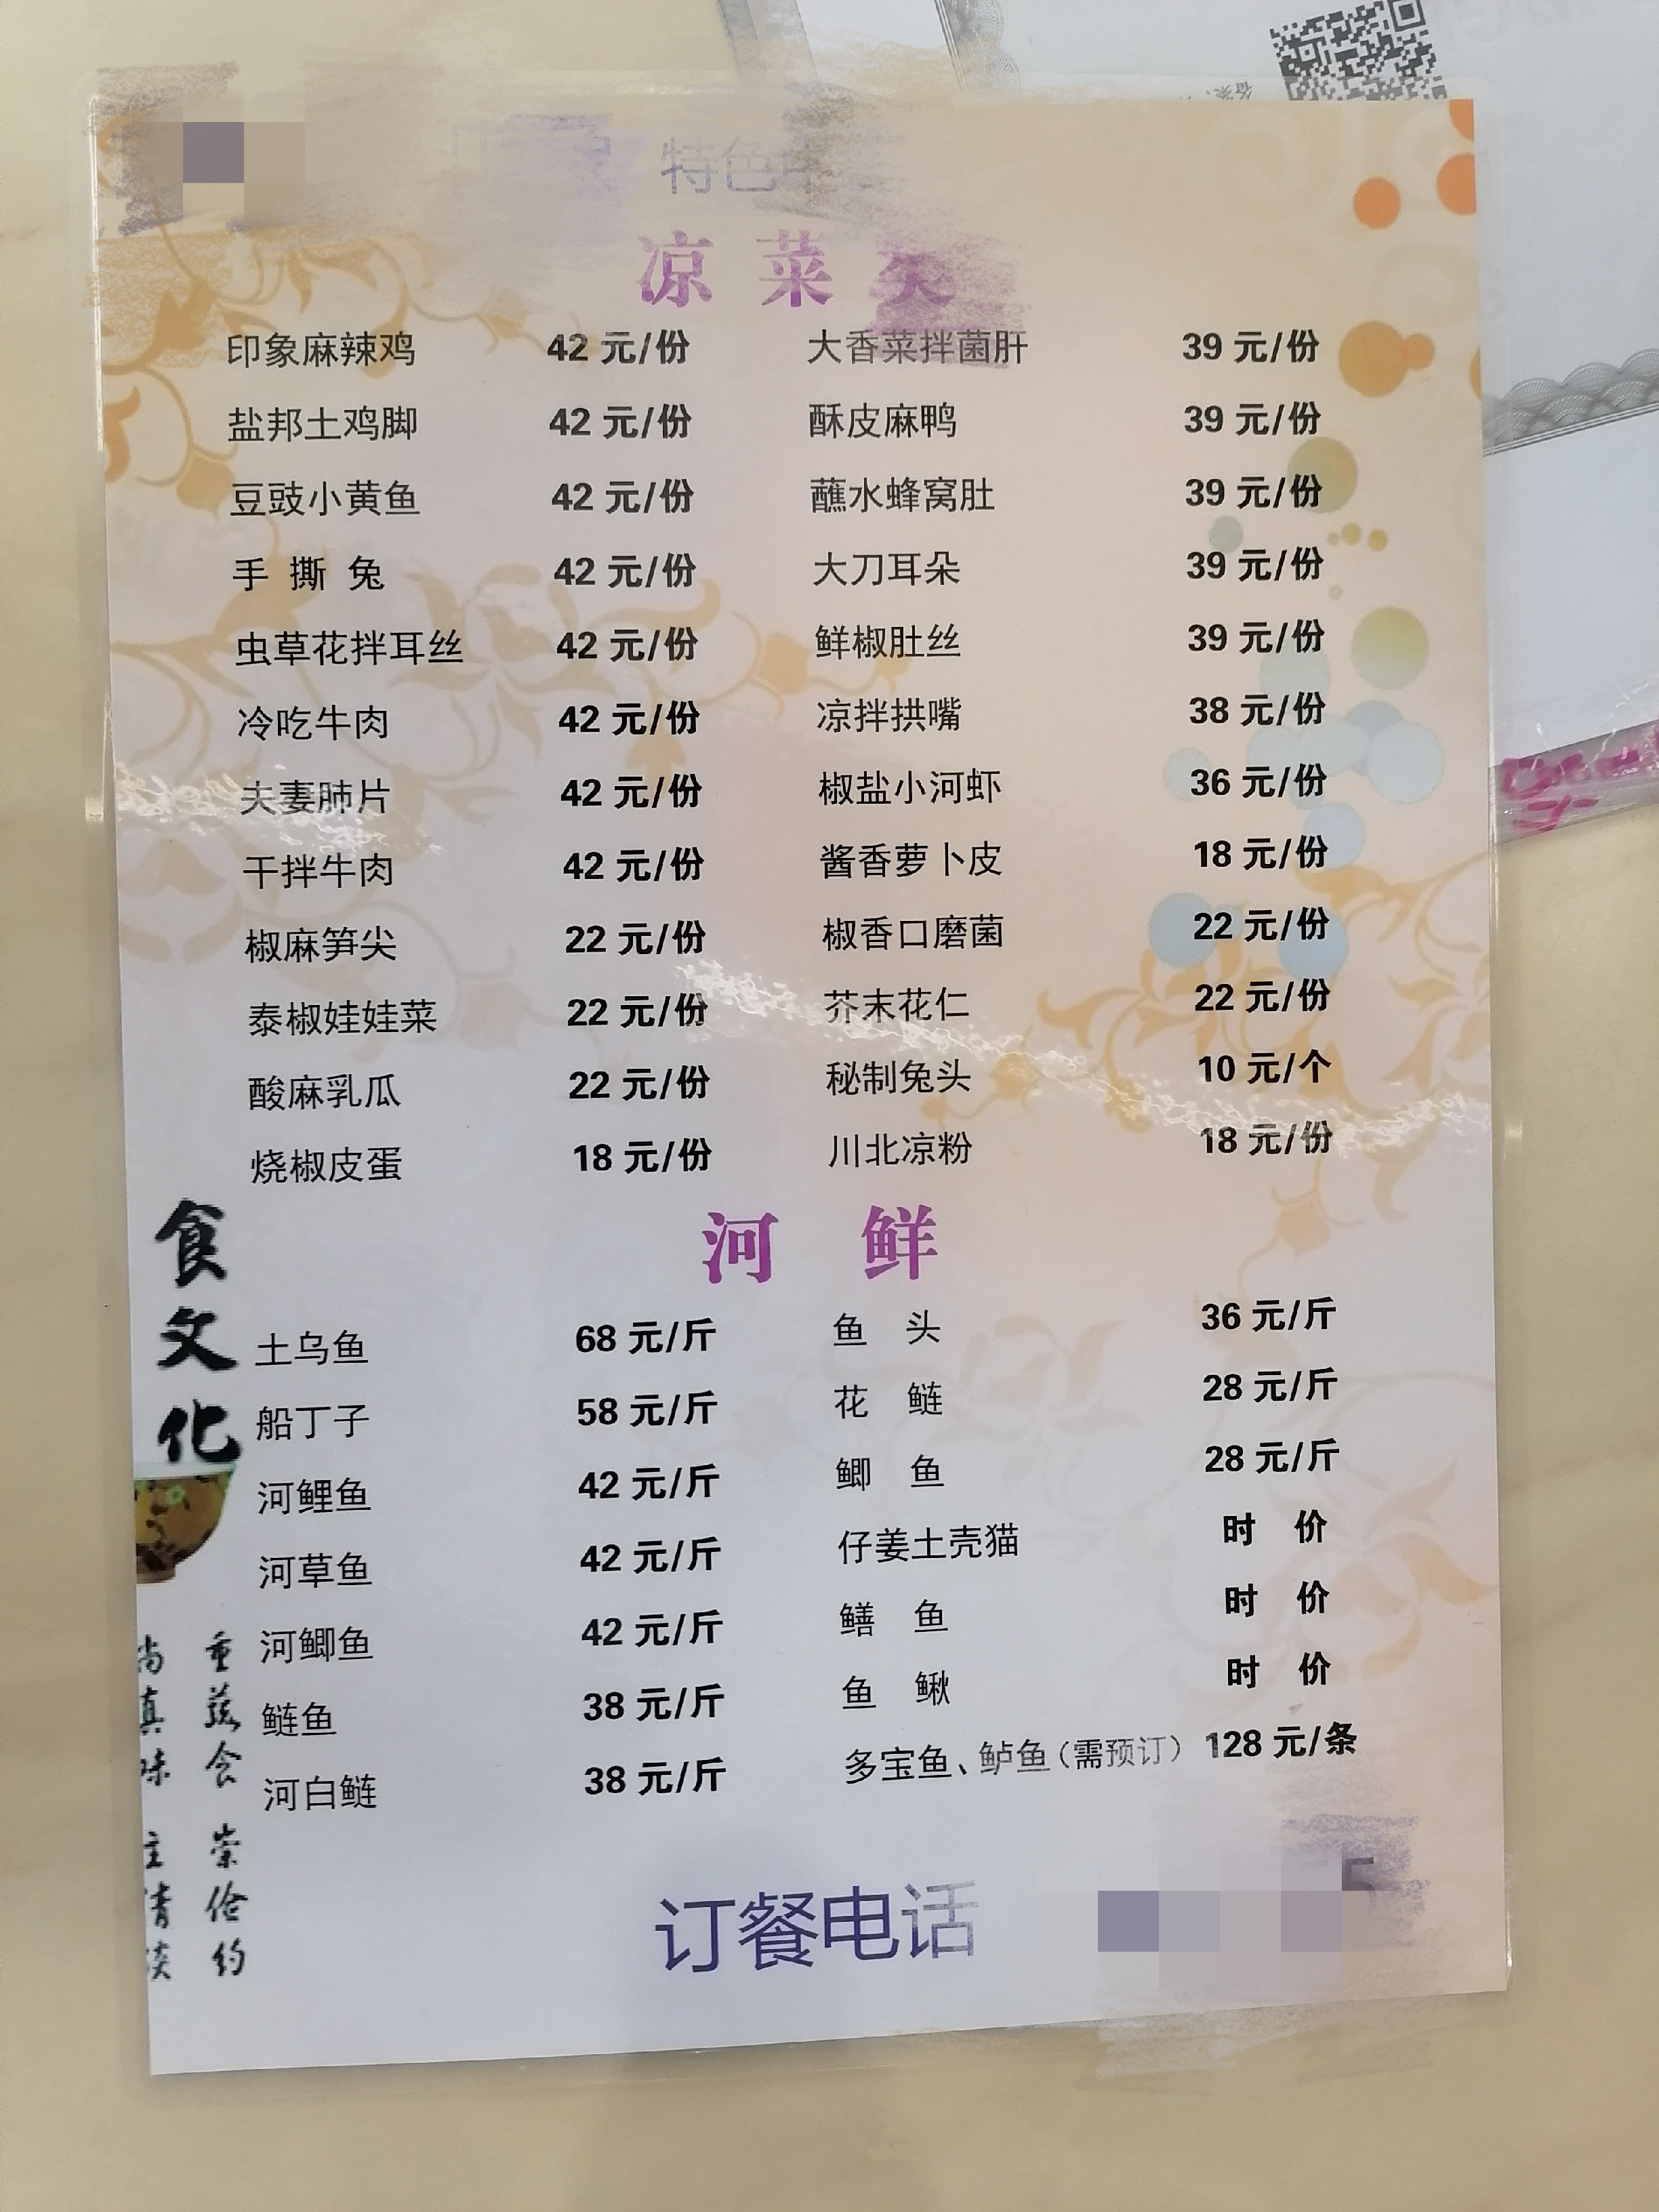 特色
凉菜类
印象麻辣鸡 42 元/份 大香菜拌菌肝 39 元/份
盐邦土鸡脚 42 元/份 酥皮麻鸭 39 元/份
豆豉小黄鱼 42 元/份 蘸水蜂窝肚 39 元/份
手 撕 兔 42 元/份 大刀耳朵 39 元/份
虫草花拌耳丝 42 元/份 鲜椒肚丝 39 元/份
冷吃牛肉 42 元/份 凉拌拱嘴 38 元/份
夫妻肺片 42 元/份 椒盐小河虾 36 元/份
干拌牛肉 42 元/份 酱香萝卜皮 18 元/份
椒麻笋尖 22 元/份 椒香口磨菌 22 元/份
泰椒娃娃菜 22 元/份 芥末花仁 22 元/份
酸麻乳瓜 22 元/份 秘制兔头 10 元/个
烧椒皮蛋 18 元/份 川北凉粉 18 元/份
河 鲜
土乌鱼 68 元/斤 鱼 头 36 元/斤
船丁子 58 元/斤 花 鲢 28 元/斤
河鲤鱼 42 元/斤 鲫 鱼 28 元/斤
河草鱼 42 元/斤 仔姜土壳猫 时 价
河鲫鱼 42 元/斤 鳝 鱼 时 价
鲢鱼 38 元/斤 鱼 鳅 时 价
河白鲢 38 元/斤 多宝鱼、鲈鱼（需预订） 128 元/条
食文化
重蔬食 崇俭约
尚真味 主清淡
订餐电话 5